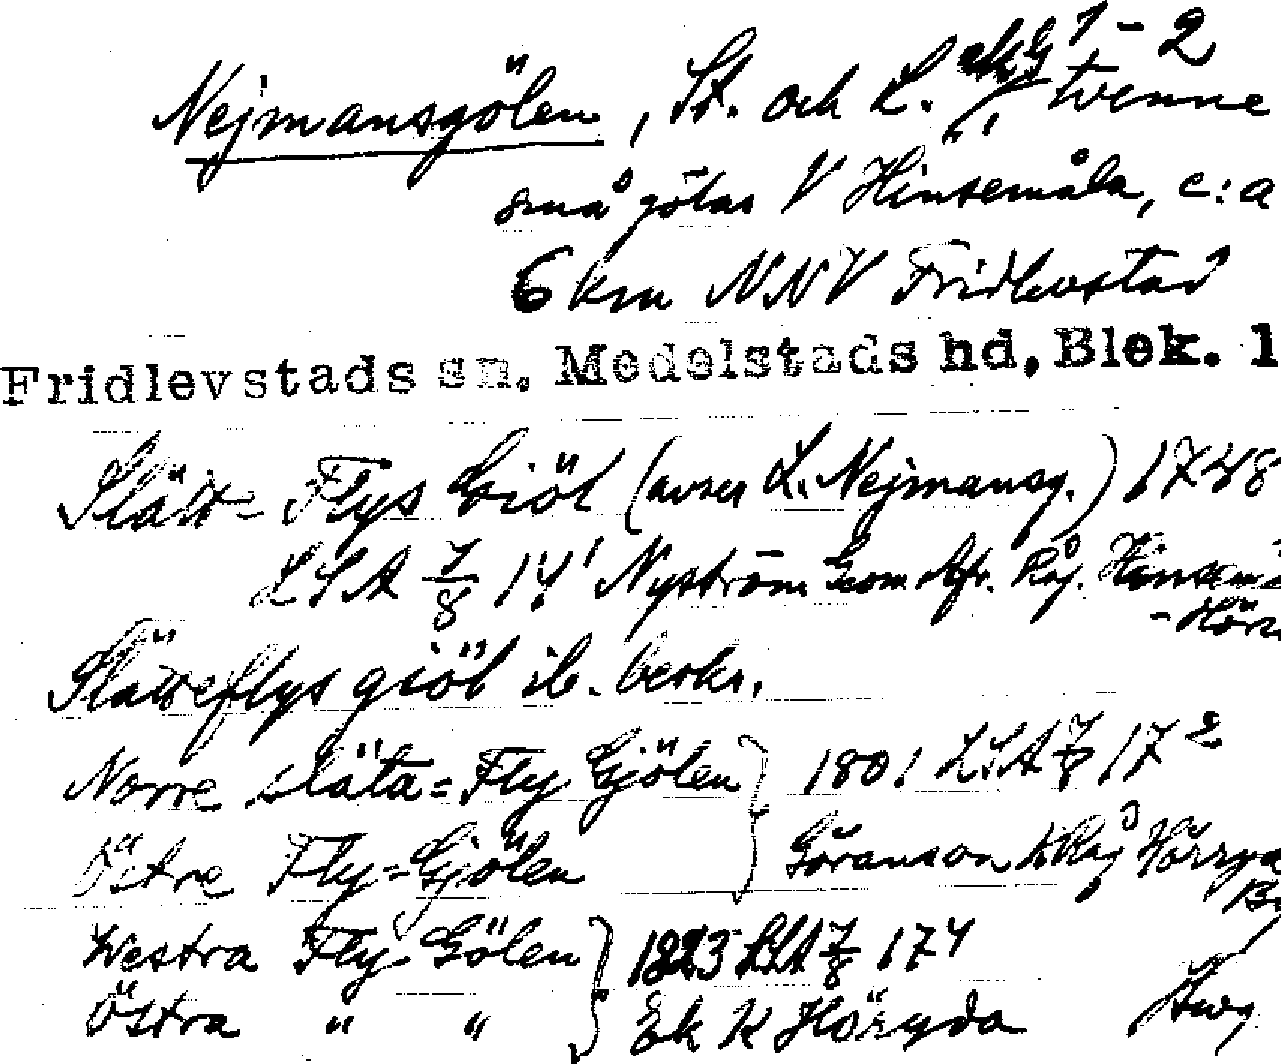 Nejmansgölen, St. och L. ekG 1-2 tvenne
små gölar V Hinsemåla, c:a
6 km NNV Fridlevstad
Fridlevstads sn. Medelstads hd, Blek. l
Slätt= Flys Giöl (avser L. Nejmansg.) 1748
LSA 7/8 14' Nyström Geom Afr. Råg. Hinsemå
- Hörr
Slätteflys giöl ib. beskr.
Norre släta= Fly Gjölen } 1801 LSA 7/8 17²
Östre Fly=Gjölen Göranson K Råg Hörryda
Westra Fly Gölen } 1823 LSA 7/8 174
Östra " " Ek K Höryda